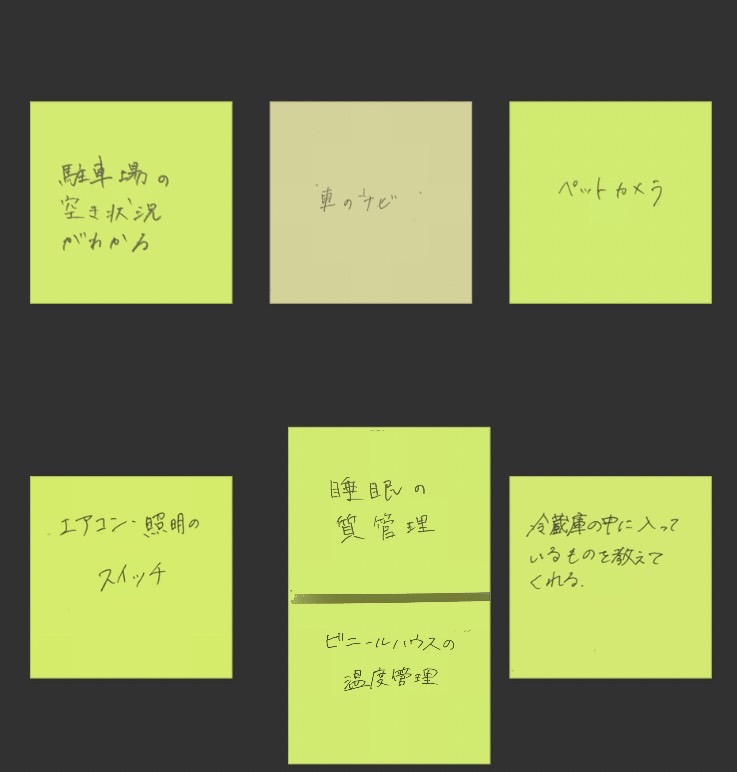 駐車場の
空き状況
がわかる
車のナビ
ペットカメラ
エアコン・照明の
スイッチ
睡眠の
質管理
ビニールハウスの
温度管理
冷蔵庫の中に入って
いるものを教えて
くれる.